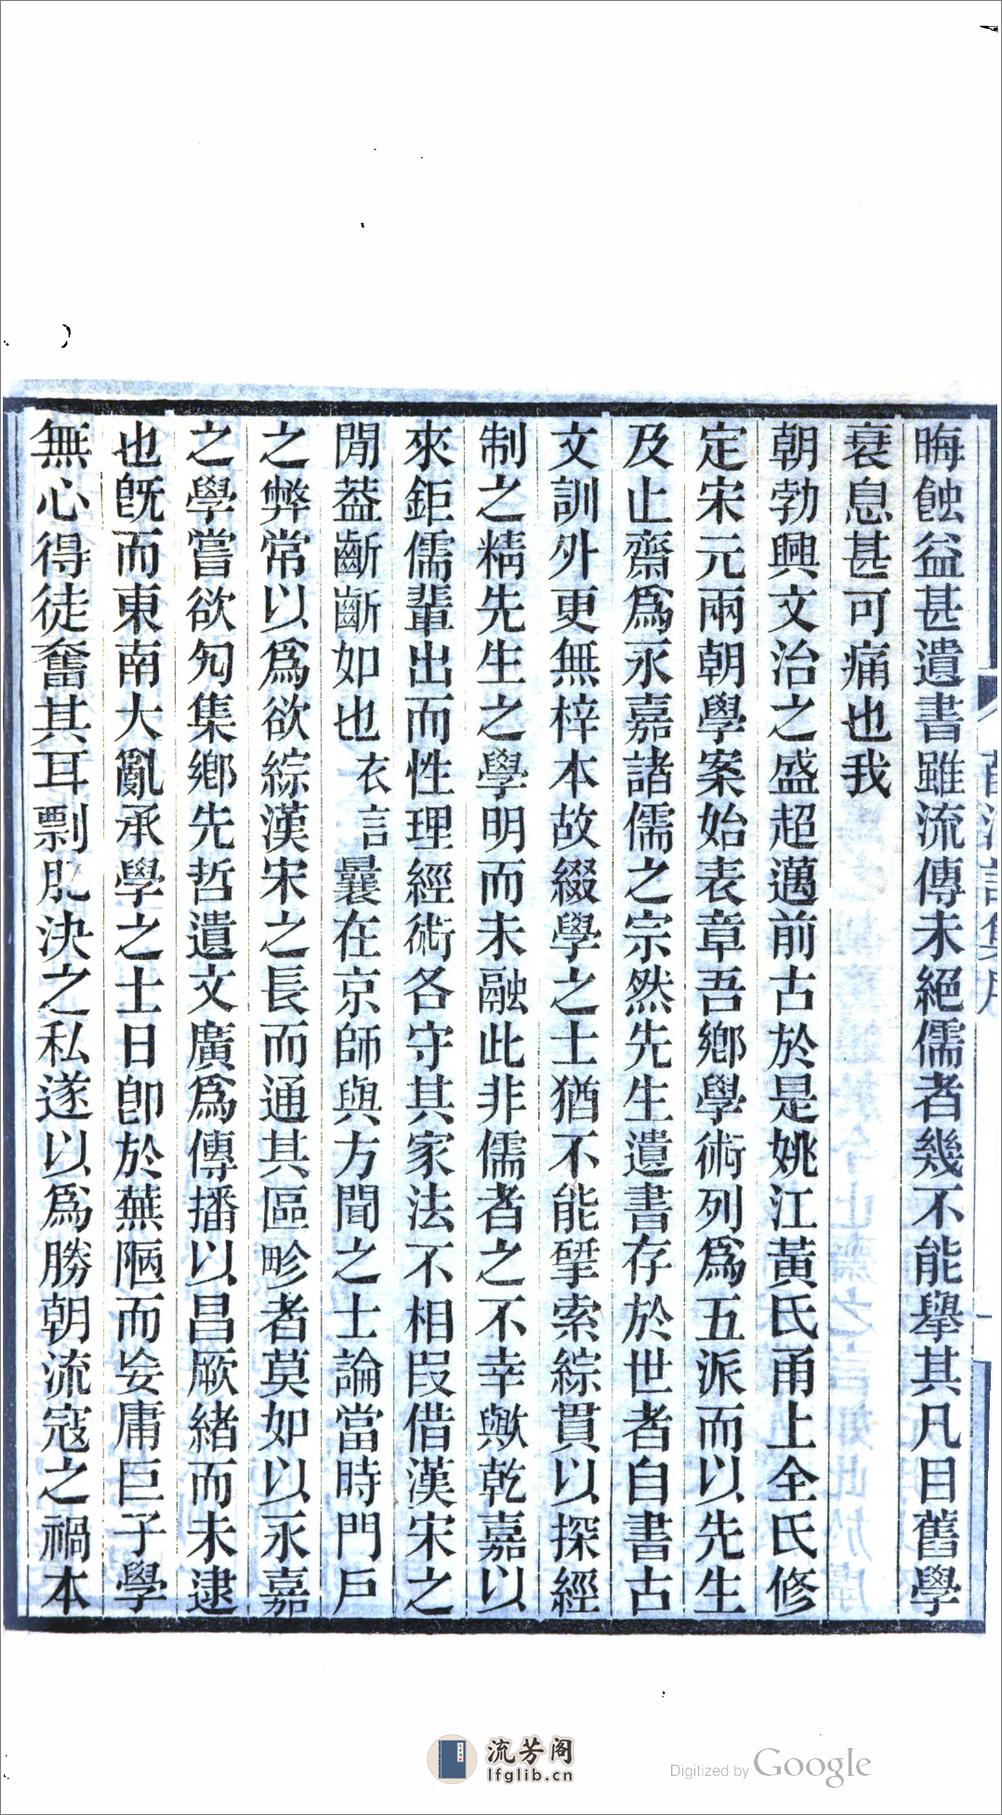 晦蝕益甚遺書雖流傳未絕儒者幾不能舉其凡目舊學
衰息甚可痛也我
朝勃興文治之盛超邁前古於是姚江黃氏甬上全氏修
定宋元兩朝學案始表章吾鄉學術列爲五派而以先生
及止齋爲永嘉諸儒之宗然先生遺書存於世者自書古
文訓外更無梓本故綴學之士猶不能揅索綜貫以探經
制之精先生之學明而未融此非儒者之不幸歟乾嘉以
來鉅儒輩出而性理經術各守其家法不相叚借漢宋之
閒葢齗齗如也衣言曩在京師與方聞之士論當時門戶
之弊常以爲欲綜漢宋之長而通其區畛者莫如以永嘉
之學嘗欲勼集鄉先哲遺文廣爲傳播以昌厥緒而未逮
也旣而東南大亂承學之士日卽於蕪陋而妄庸巨子學
無心得徒奮其耳剽肊決之私遂以爲勝朝流寇之禍本
流芳阁
lfglib.cn
Digitized by Google